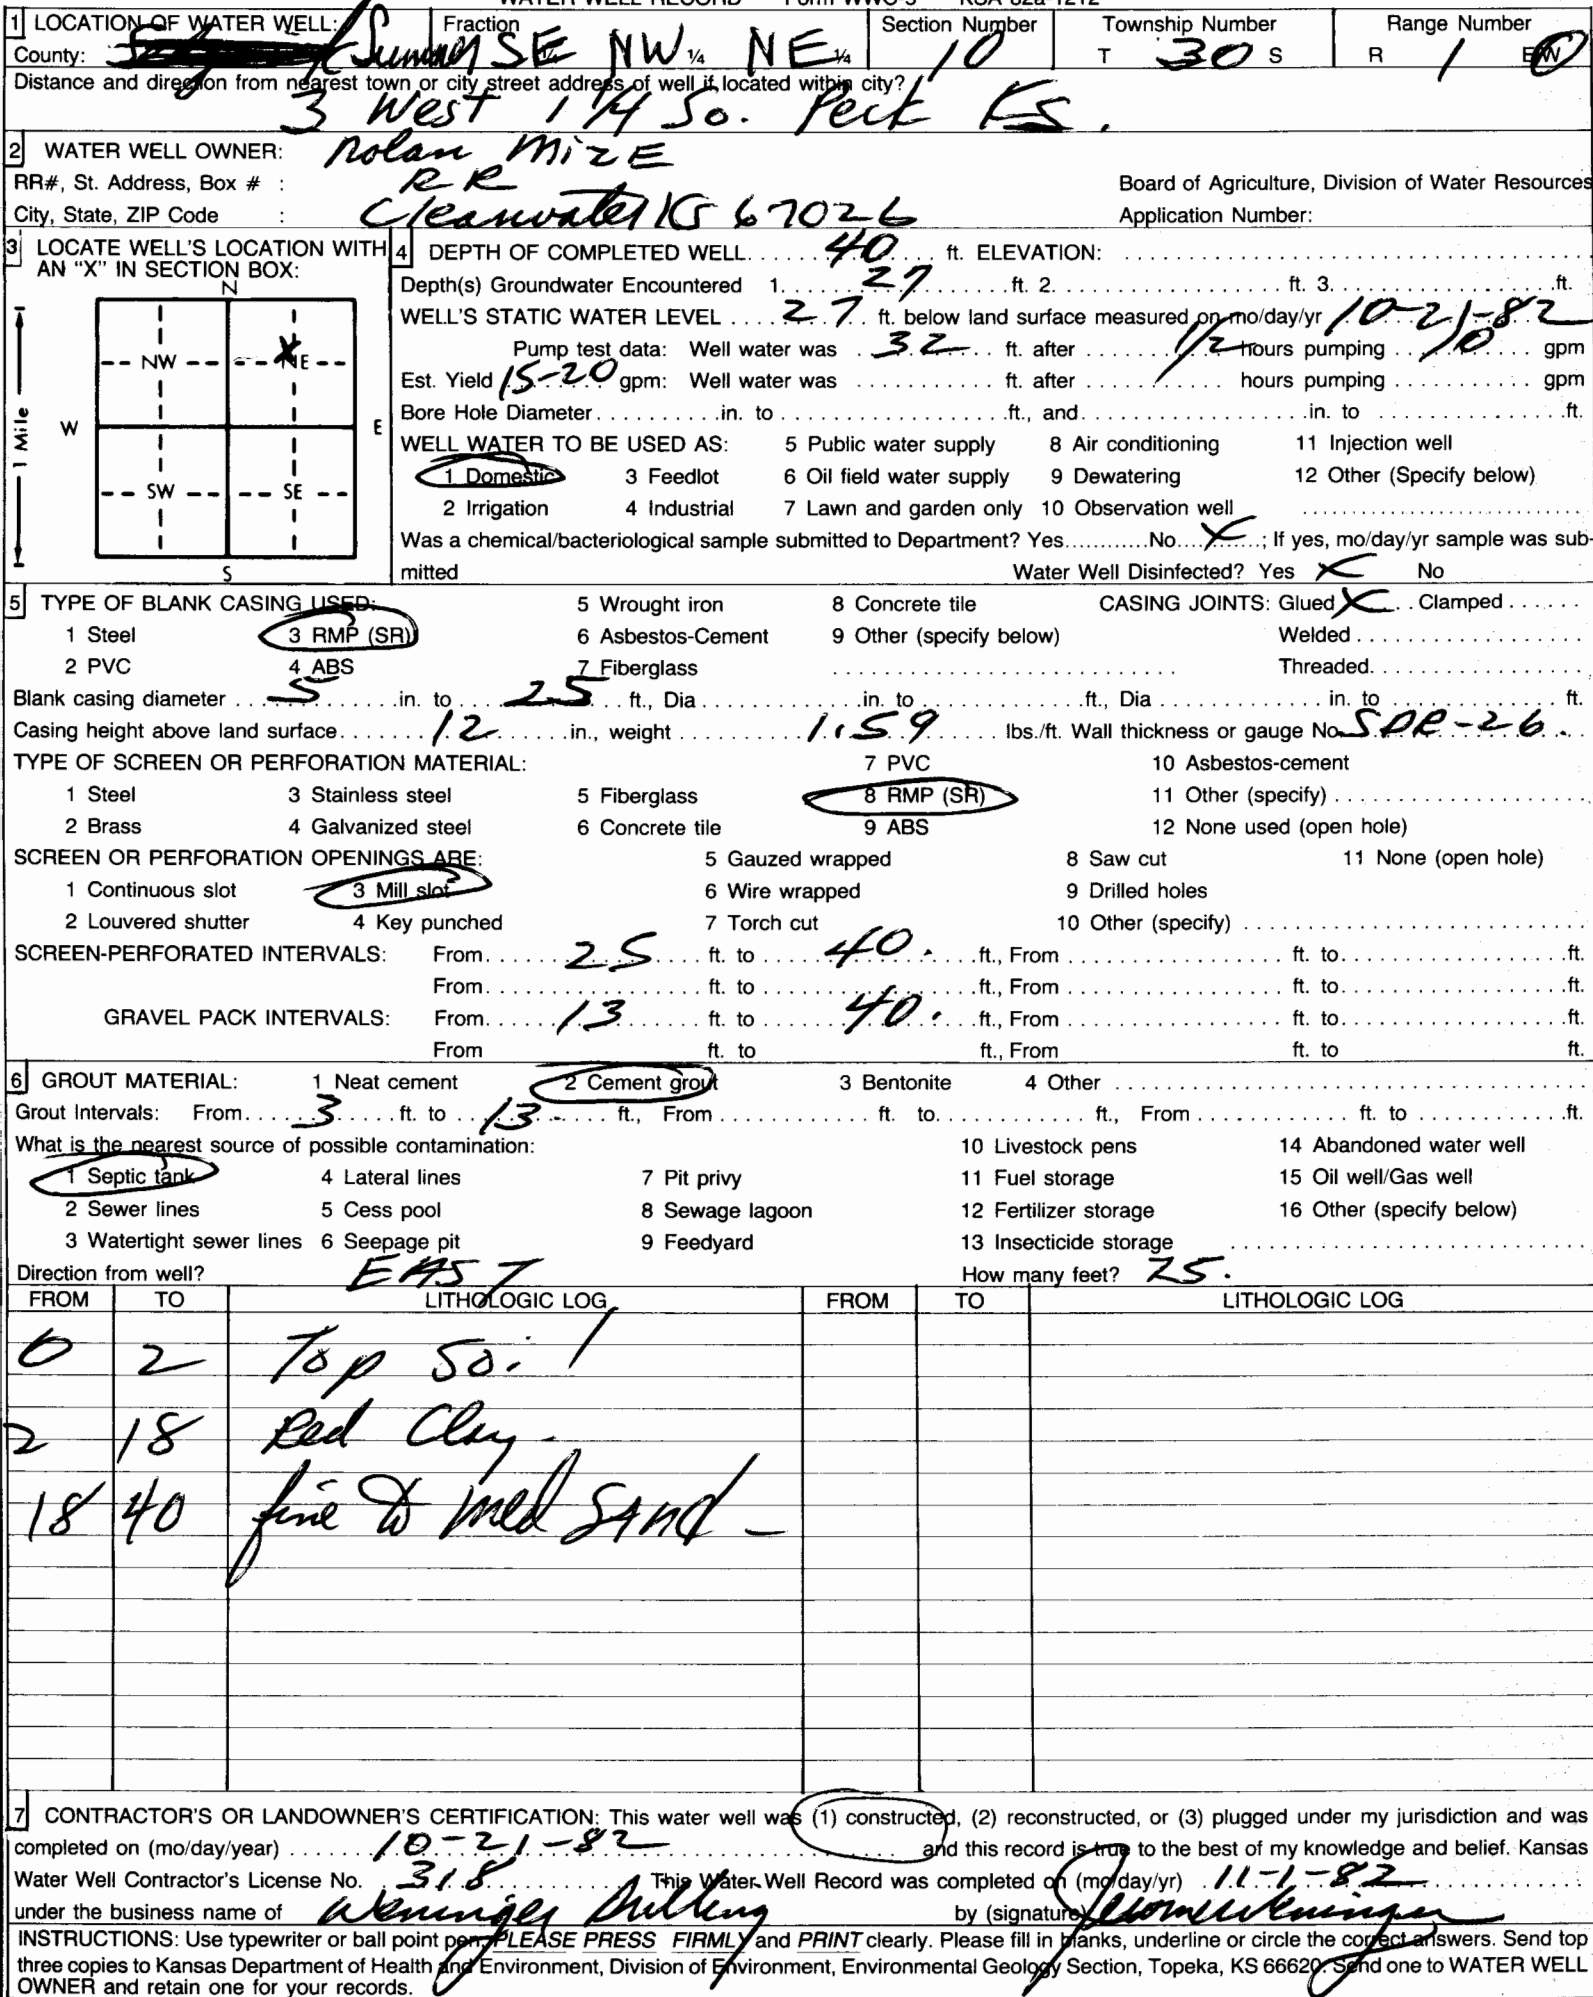 WATER WELL RECORD Form WWC-5 KSA 82a-1212
1 LOCATION OF WATER WELL: Fraction Section Number Township Number Range Number
County: Sumner SE ¼ NW ¼ NE ¼ 10 T 30 S R 1 E/W
Distance and direction from nearest town or city street address of well if located within city?
3 West 1 1/4 So. Peck Ks.
2 WATER WELL OWNER: Nolan Mize
RR#, St. Address, Box # : RR Board of Agriculture, Division of Water Resources
City, State, ZIP Code : Clearwater KS 67026 Application Number:
3 LOCATE WELL'S LOCATION WITH AN "X" IN SECTION BOX:
N
NW NE
W E
SW SE
S
1 Mile
X
4 DEPTH OF COMPLETED WELL 40 ft. ELEVATION:
Depth(s) Groundwater Encountered 1. 27 ft. 2. ft. 3. ft.
WELL'S STATIC WATER LEVEL 27 ft. below land surface measured on mo/day/yr 10-21-82
Pump test data: Well water was 32 ft. after 1/2 hours pumping 10 gpm
Est. Yield 15-20 gpm: Well water was ft. after hours pumping gpm
Bore Hole Diameter in. to ft., and in. to ft.
WELL WATER TO BE USED AS: 5 Public water supply 8 Air conditioning 11 Injection well
1 Domestic 3 Feedlot 6 Oil field water supply 9 Dewatering 12 Other (Specify below)
2 Irrigation 4 Industrial 7 Lawn and garden only 10 Observation well
Was a chemical/bacteriological sample submitted to Department? Yes No X ; If yes, mo/day/yr sample was sub-
mitted Water Well Disinfected? Yes X No
5 TYPE OF BLANK CASING USED: 5 Wrought iron 8 Concrete tile CASING JOINTS: Glued X Clamped
1 Steel 3 RMP (SR) 6 Asbestos-Cement 9 Other (specify below) Welded
2 PVC 4 ABS 7 Fiberglass Threaded
Blank casing diameter 5 in. to 25 ft., Dia in. to ft., Dia in. to ft.
Casing height above land surface 12 in., weight 1.59 lbs./ft. Wall thickness or gauge No SDR-26.
TYPE OF SCREEN OR PERFORATION MATERIAL: 7 PVC 10 Asbestos-cement
1 Steel 3 Stainless steel 5 Fiberglass 8 RMP (SR) 11 Other (specify)
2 Brass 4 Galvanized steel 6 Concrete tile 9 ABS 12 None used (open hole)
SCREEN OR PERFORATION OPENINGS ARE: 5 Gauzed wrapped 8 Saw cut 11 None (open hole)
1 Continuous slot 3 Mill slot 6 Wire wrapped 9 Drilled holes
2 Louvered shutter 4 Key punched 7 Torch cut 10 Other (specify)
SCREEN-PERFORATED INTERVALS: From 25 ft. to 40. ft., From ft. to ft.
From ft. to ft., From ft. to ft.
GRAVEL PACK INTERVALS: From 13 ft. to 40. ft., From ft. to ft.
From ft. to ft., From ft. to ft.
6 GROUT MATERIAL: 1 Neat cement 2 Cement grout 3 Bentonite 4 Other
Grout Intervals: From 3 ft. to 13 ft., From ft. to ft., From ft. to ft.
What is the nearest source of possible contamination: 10 Livestock pens 14 Abandoned water well
1 Septic tank 4 Lateral lines 7 Pit privy 11 Fuel storage 15 Oil well/Gas well
2 Sewer lines 5 Cess pool 8 Sewage lagoon 12 Fertilizer storage 16 Other (specify below)
3 Watertight sewer lines 6 Seepage pit 9 Feedyard 13 Insecticide storage
Direction from well? EAST How many feet? 75.
FROM TO LITHOLOGIC LOG FROM TO LITHOLOGIC LOG
0 2 Top Soil
2 18 Red Clay -
18 40 fine to med SAnd -
7 CONTRACTOR'S OR LANDOWNER'S CERTIFICATION: This water well was (1) constructed, (2) reconstructed, or (3) plugged under my jurisdiction and was
completed on (mo/day/year) 10-21-82 and this record is true to the best of my knowledge and belief. Kansas
Water Well Contractor's License No. 318 This Water Well Record was completed on (mo/day/yr) 11-1-82
under the business name of Weninger Drilling by (signature) Jerome Weninger
INSTRUCTIONS: Use typewriter or ball point pen, PLEASE PRESS FIRMLY and PRINT clearly. Please fill in blanks, underline or circle the correct answers. Send top
three copies to Kansas Department of Health and Environment, Division of Environment, Environmental Geology Section, Topeka, KS 66620. Send one to WATER WELL
OWNER and retain one for your records.